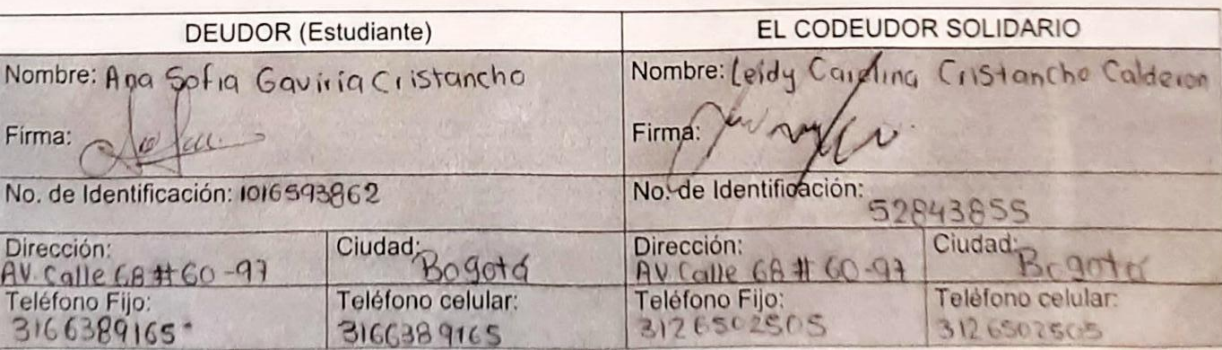 DEUDOR (Estudiante)
EL CODEUDOR SOLIDARIO
Nombre: Ana Sofia Gaviria Cristancho
Nombre: Leidy Carolina Cristancho Calderon
Firma:
Firma:
No. de Identificación: 1016593862
No. de Identificación: 52843855
Dirección: AV. Calle 68 # 60-97
Ciudad: Bogotá
Dirección: AV. Calle 68 # 60-97
Ciudad: Bogotá
Teléfono Fijo: 3166389165
Teléfono celular: 3166389165
Teléfono Fijo: 3126502505
Teléfono celular: 3126502505